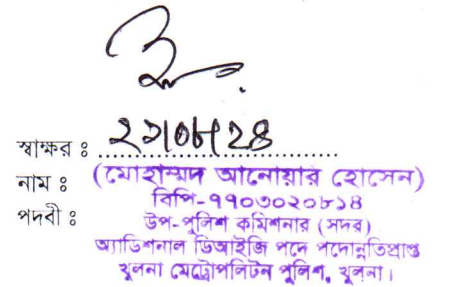 স্বাক্ষর ঃ ২৭/০৮/২৪
নাম ঃ (মোহাম্মদ আনোয়ার হোসেন)
বিপি-৭৭০৩০২০৮১৪
পদবী ঃ উপ-পুলিশ কমিশনার (সদর)
অ্যাডিশনাল ডিআইজি পদে পদোন্নতিপ্রাপ্ত
খুলনা মেট্রোপলিটন পুলিশ, খুলনা।